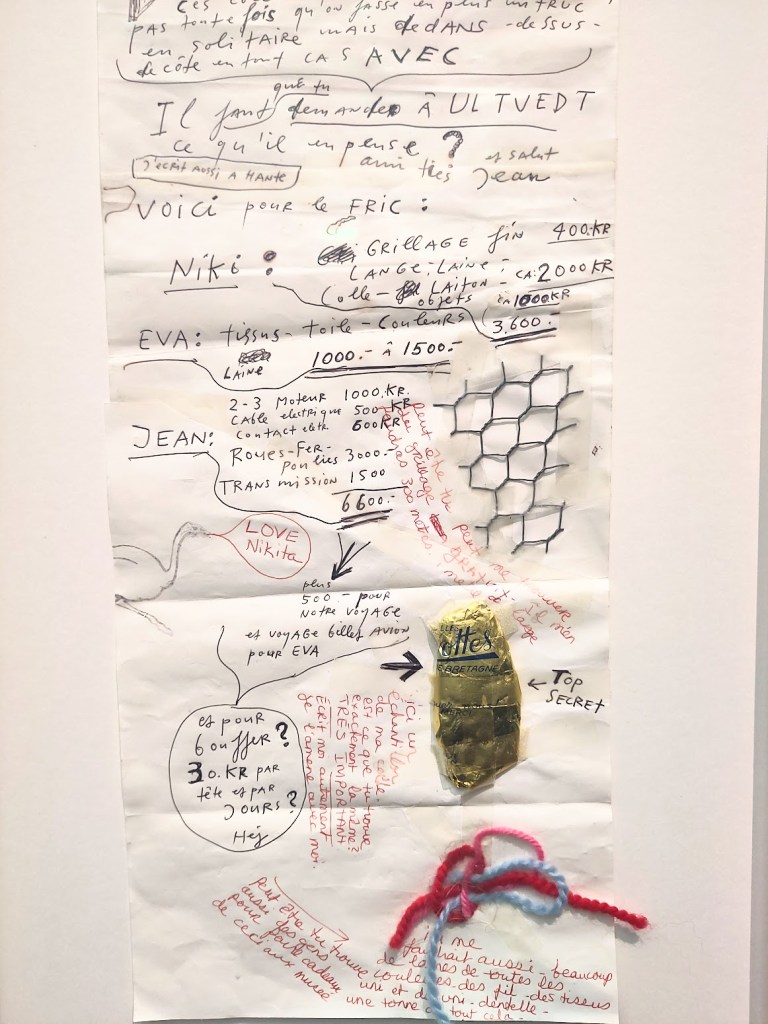 CES
fois qu'on fasse en plus un truc
pas toute
en solitaire mais dedANS - dessus -
de côte en tout CAS AVEC
que tu
Il faut demander à ULTVEDT
ce qu'il en pense ?
J'écrit aussi A HANTE
ami très et salut
Jean
VOICI pour le FRIC :
Niki :
GRILLAGE fin 400.KR
LANGE-LAINE- CA: 2000 KR
Colle - LAITON -
objets ca 1000KR
3.600.-
EVA: tissus - toile - Couleurs
LAINE 1000.- à 1500.-
JEAN:
2-3 Moteur 1000.KR.
CAble electrique 500 KR
Contact eltr. 600KR
Roues-Fer-
Poulies 3000.-
TRANSmission 1500
6600.-
LOVE
Nikita
peut être tu peut me trouver
du grillage GRATUIT. Il m'en
faudras 300 metres.
large
plus
500.- pour
Notre voyage
et voyage billet AVION
pour EVA
ottes
BRETAGNE
← TOP
SECRET
et pour
bouffer ?
30.KR par
tête et par
Jours ?
Hej
ici un
échantillon
de ma colle.
est ce que tu trouve
exactement la même?
TRÈS IMPORTANT
Écrit moi autrement
je l'amene avec moi.
Peut être tu trouve
aussi des gens
pour faire cadeaux
de ceci aux musée
il me
faudrait aussi - beaucoup
de laines de toutes les
couleures - des fil - des tissus
uni et de uni - dentelle -
une tonne de tout cela -